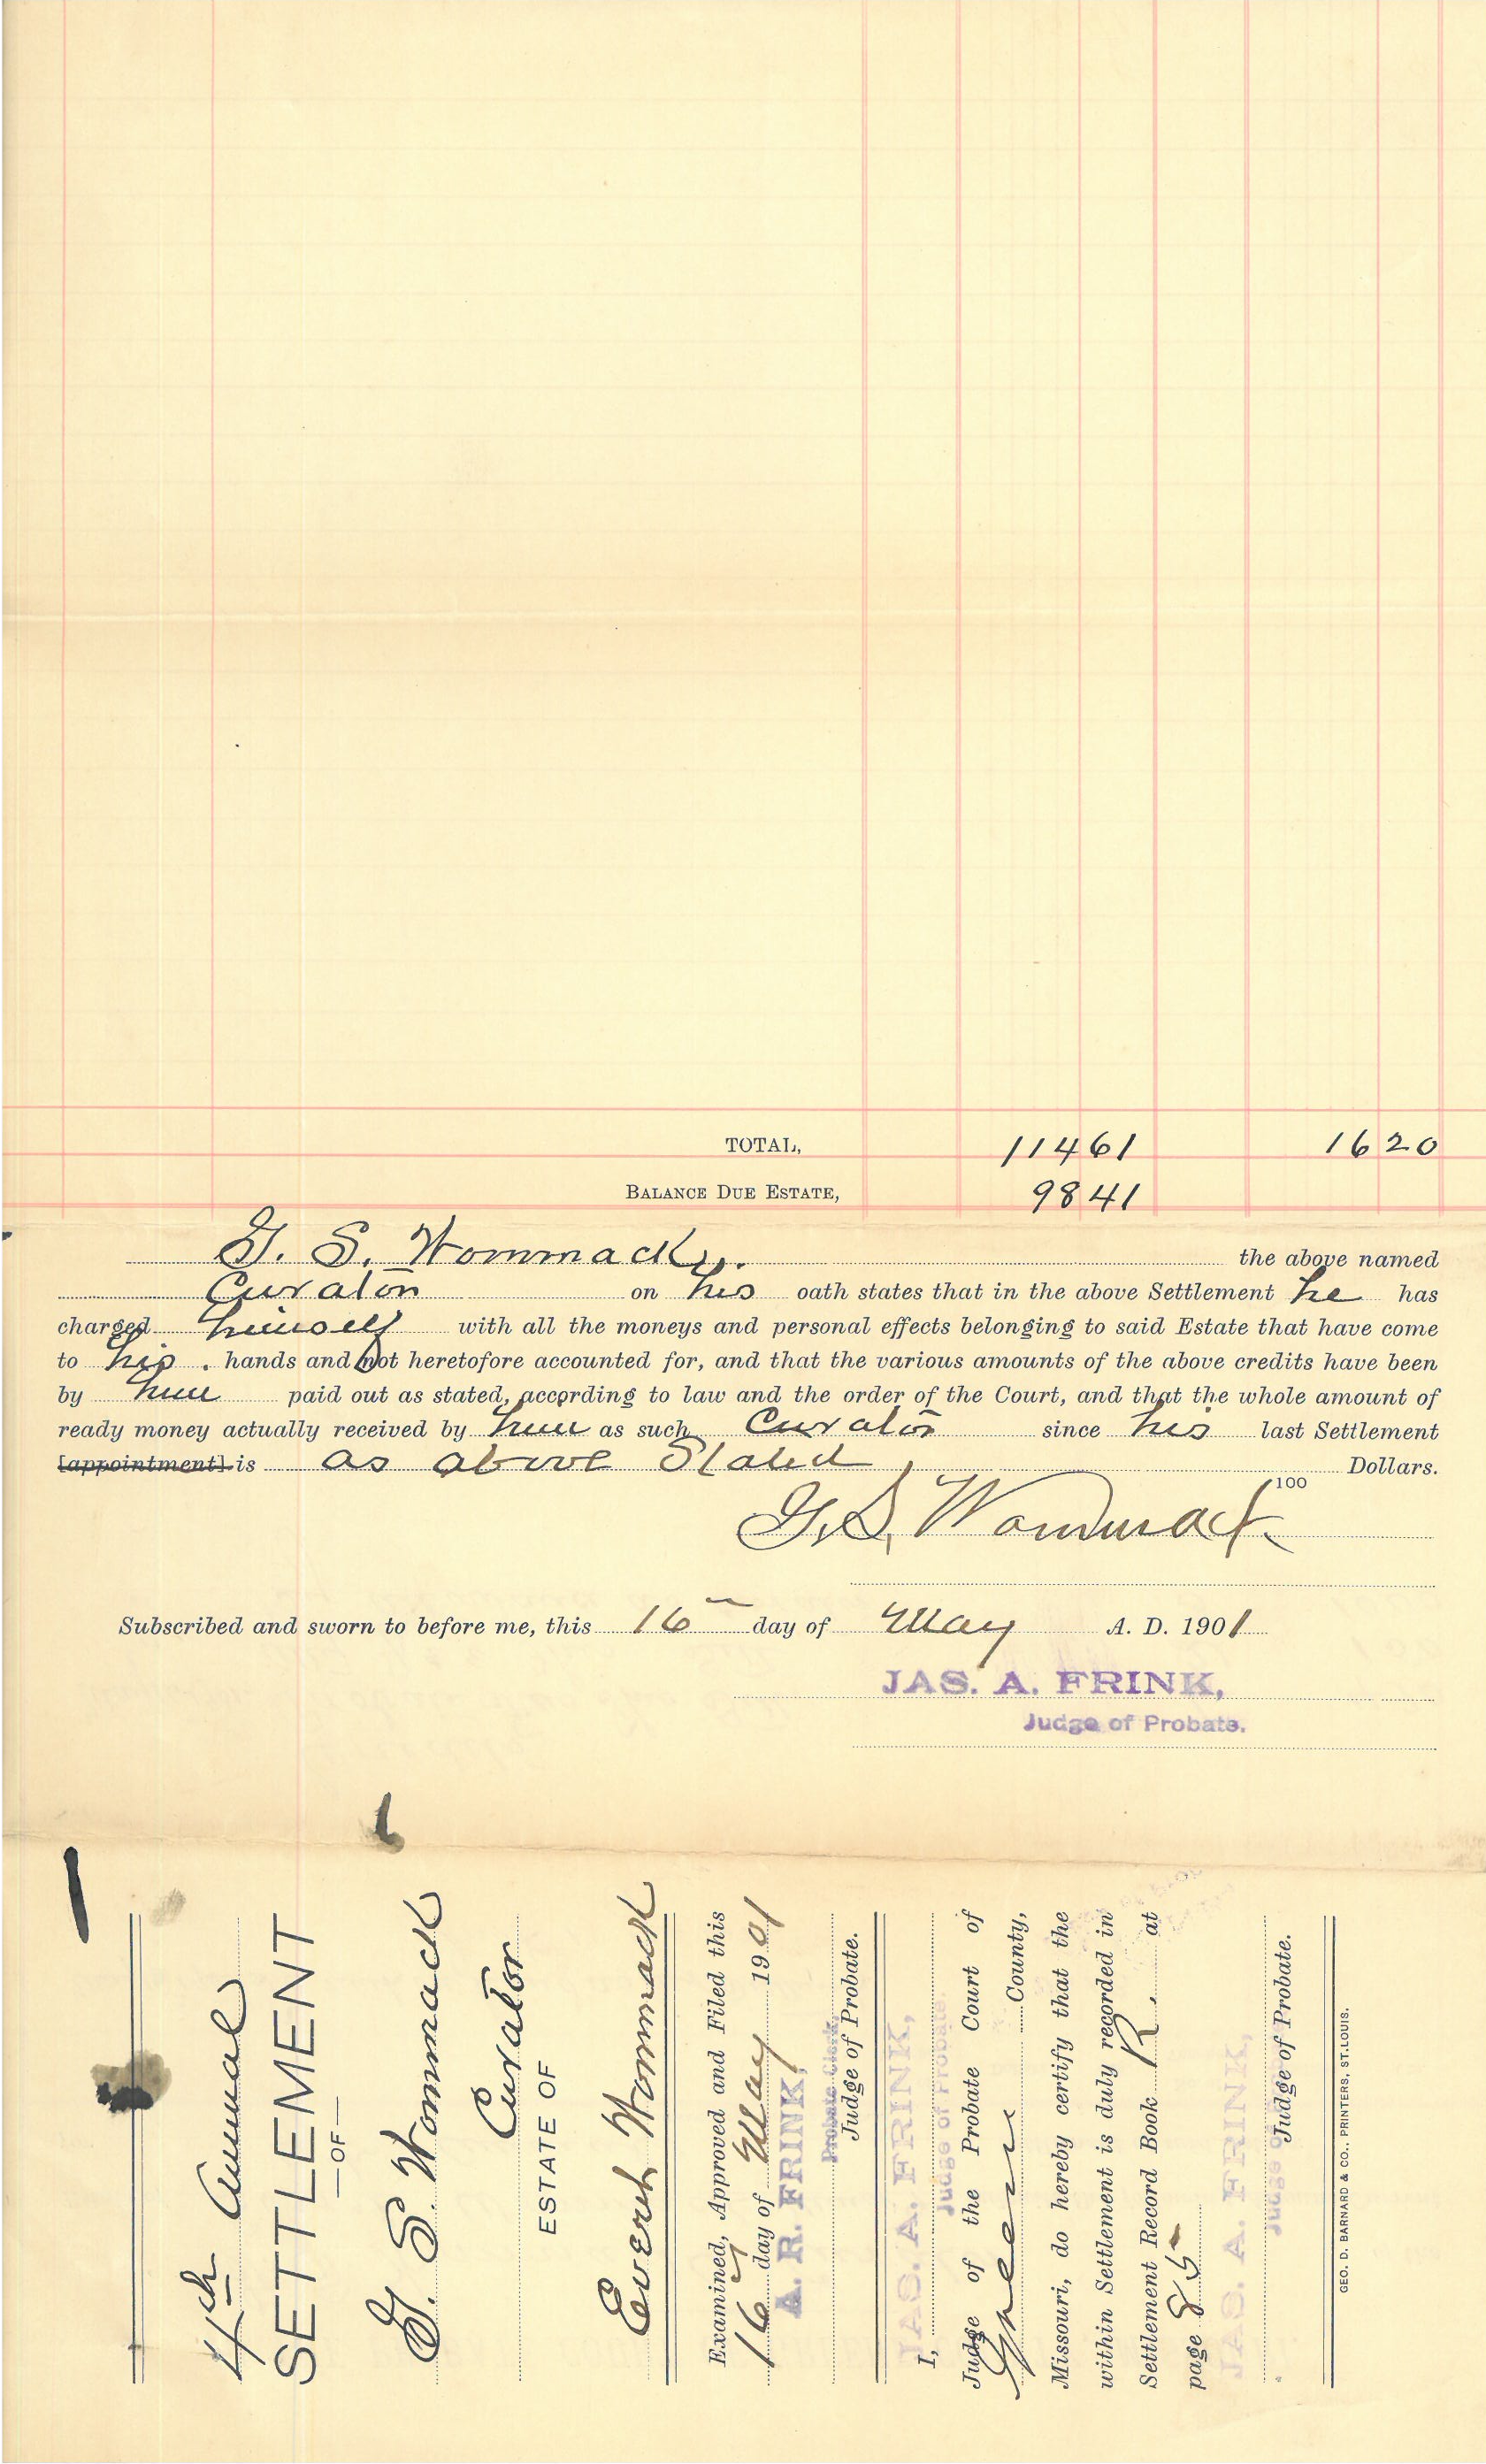 TOTAL, 11461 1620
BALANCE DUE ESTATE, 9841
G. S. Wommack, the above named
Curator on his oath states that in the above Settlement he has
charged himself with all the moneys and personal effects belonging to said Estate that have come
to his hands and not heretofore accounted for, and that the various amounts of the above credits have been
by him paid out as stated, according to law and the order of the Court, and that the whole amount of
ready money actually received by him as such Curator since his last Settlement
[appointment] is as above Stated, Dollars.
100
G. S. Wommack
Subscribed and sworn to before me, this 16 day of May A. D. 1901
JAS. A. FRINK,
Judge of Probate.
4th Annual
SETTLEMENT
—OF—
G. S. Wommack
Curator
ESTATE OF
Everet Wommack
Examined, Approved and Filed this
16 day of May 1901
A. R. FRINK,
Probate Clerk,
Judge of Probate.
I, JAS. A. FRINK,
Judge of Probate.
Judge of the Probate Court of
Greene County,
Missouri, do hereby certify that the
within Settlement is duly recorded in
Settlement Record Book R. at
page 85
JAS. A. FRINK,
Judge of Probate.
Judge of Probate.
GEO. D. BARNARD & CO., PRINTERS, ST. LOUIS.